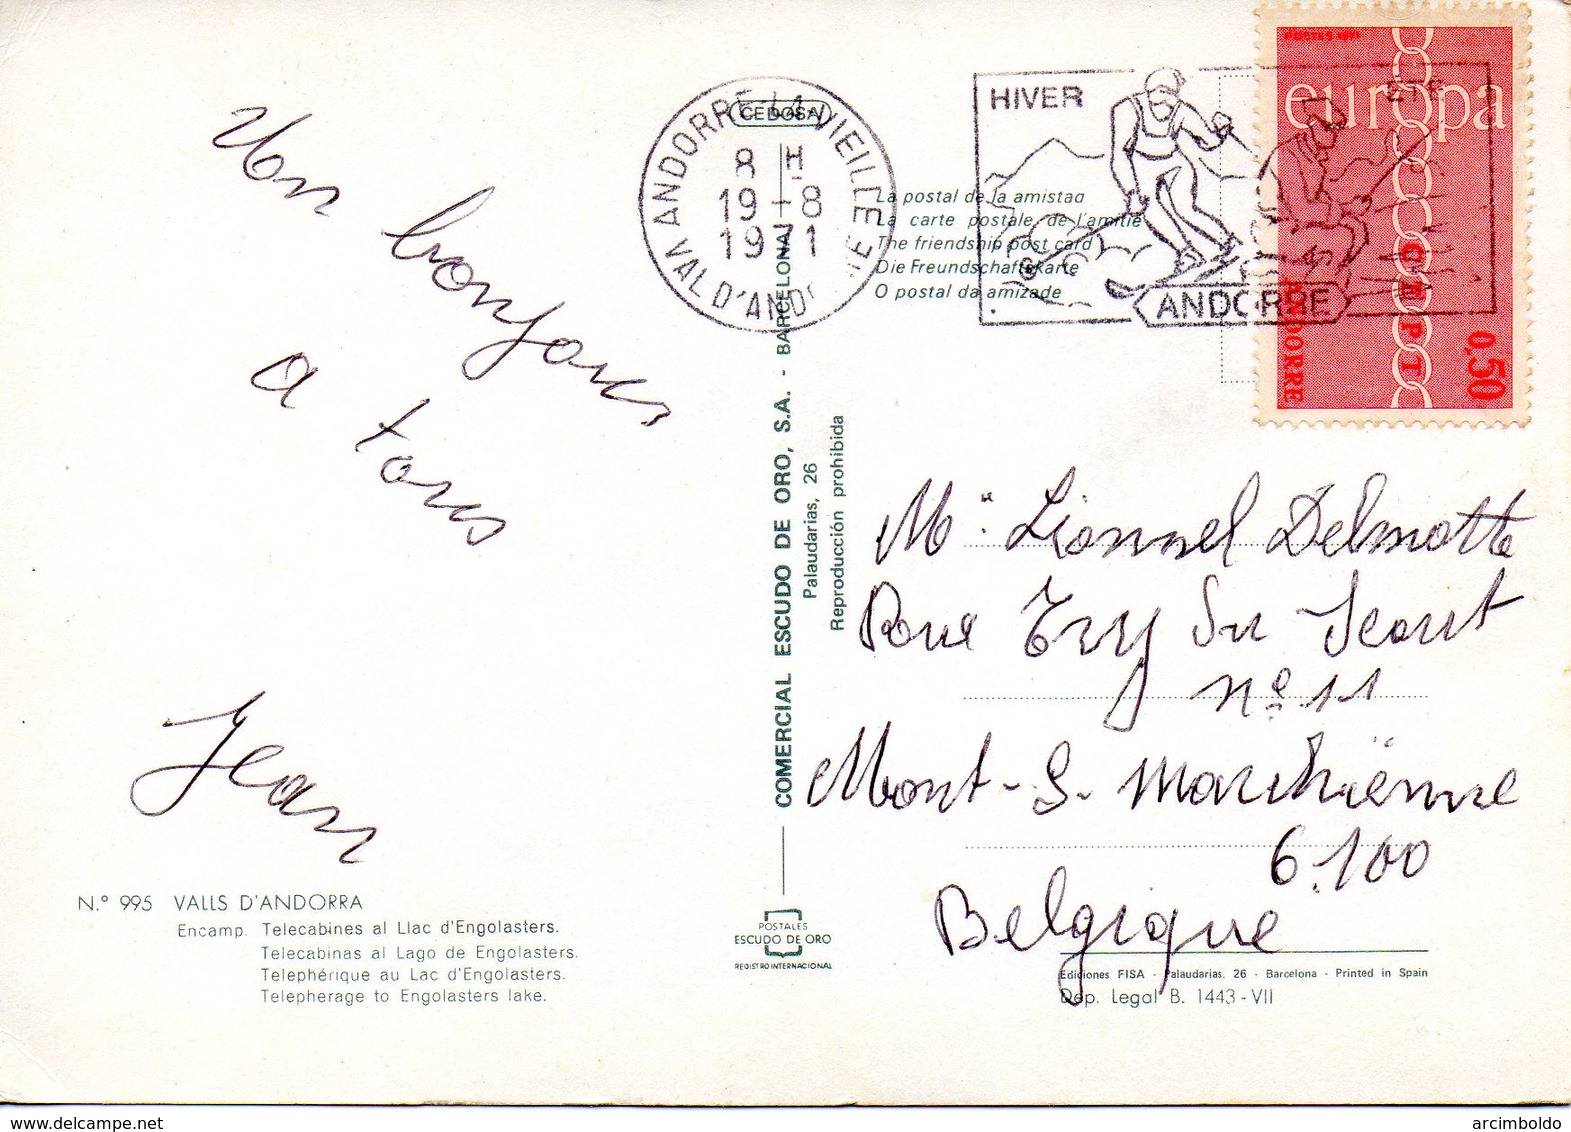 Un bonjours
a tous
Jean
N.º 995 VALLS D'ANDORRA
Encamp. Telecabines al Llac d'Engolasters.
Telecabinas al Lago de Engolasters.
Telephérique au Lac d'Engolasters.
Telepherage to Engolasters lake.
CEDOSA
COMERCIAL ESCUDO DE ORO, S.A. - BARCELONA
Palaudarias, 26
Reproducción prohibida
POSTALES
ESCUDO DE ORO
REGISTRO INTERNACIONAL
ANDORRE-LA-VIEILLE
8 H
19-8
1971
VAL D'AND
La postal de la amistad
La carte postale de l'amitié
The friendship post card
Die Freundschaftskarte
O postal da amizade
HIVER
ETE
ANDORRE
POSTES 1971
europa
CEPT
ANDORRE
0,50
Mr. Lionnel Delmotte
Rue Try du Scout
nº 11
Mont-S-Marchiënne
6.100
Belgique
Ediciones FISA - Palaudarias, 26 - Barcelona - Printed in Spain
Dep. Legal B. 1443-VII
delcampe.net
arcimboldo